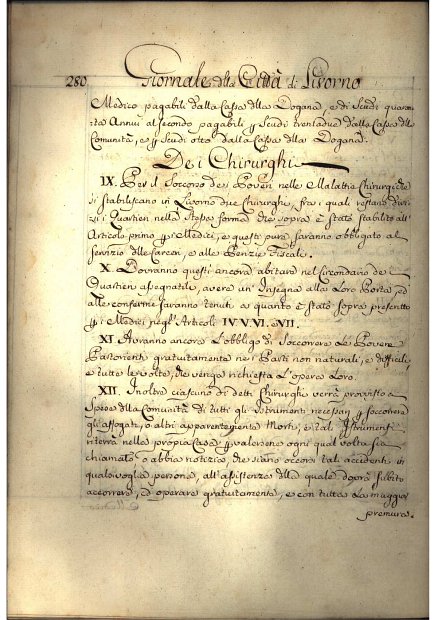 280 Giornale della Città di Livorno
Medico pagabili dalla Cassa della Dogana, e di Scudi quaran
ta Annui al secondo pagabili per Scudi trentadue dalla Cassa della
Comunità, e per Scudi otto dalla Cassa della Dogana.
Dei Chirurghi
IX. Per il Soccorso dei Poveri nelle Malattie Chirurgiche
si Stabiliscano in Livorno due Chirurghi, fra i quali restano divi
si i Quartieri nella stessa forma che sopra è stato stabilito all'
Articolo primo per i Medici, e questi pure saranno obbligati al
servizio delle Carceri, e alle Perizie Fiscali.
X. Dovranno questi ancora abitare nel Circondario de
Quartieri assegnatili, avere un' Insegna alla Loro Porta, ed
alle conferme saranno tenuti a quanto è stato sopra prescritto
per i Medici negl' Articoli IV. V. VI. e VII.
XI. Avranno ancora L'obbligo di Soccorrere Le Povere
Partorienti gratuitamente nei Parti non naturali, e difficili,
e tutte le volte, che venga richiesta L'opera Loro.
XII. Inoltre ciascuno di detti Chirurghi verrà provvisto a
Spese della Comunità di tutti gli Istrumenti necessari per soccorrere
gli affogati, o altri apparentemente Morti, e tali Istrumenti
riterrà nella propria Casa per valersene ogni qual volta sia
chiamato o abbia notizia che siano occorsi tali accidenti in
qualsivoglia persona, all'assistenza della quale dovrà subito
accorrere, ed operare gratuitamente, e con tutta La maggior
premura.